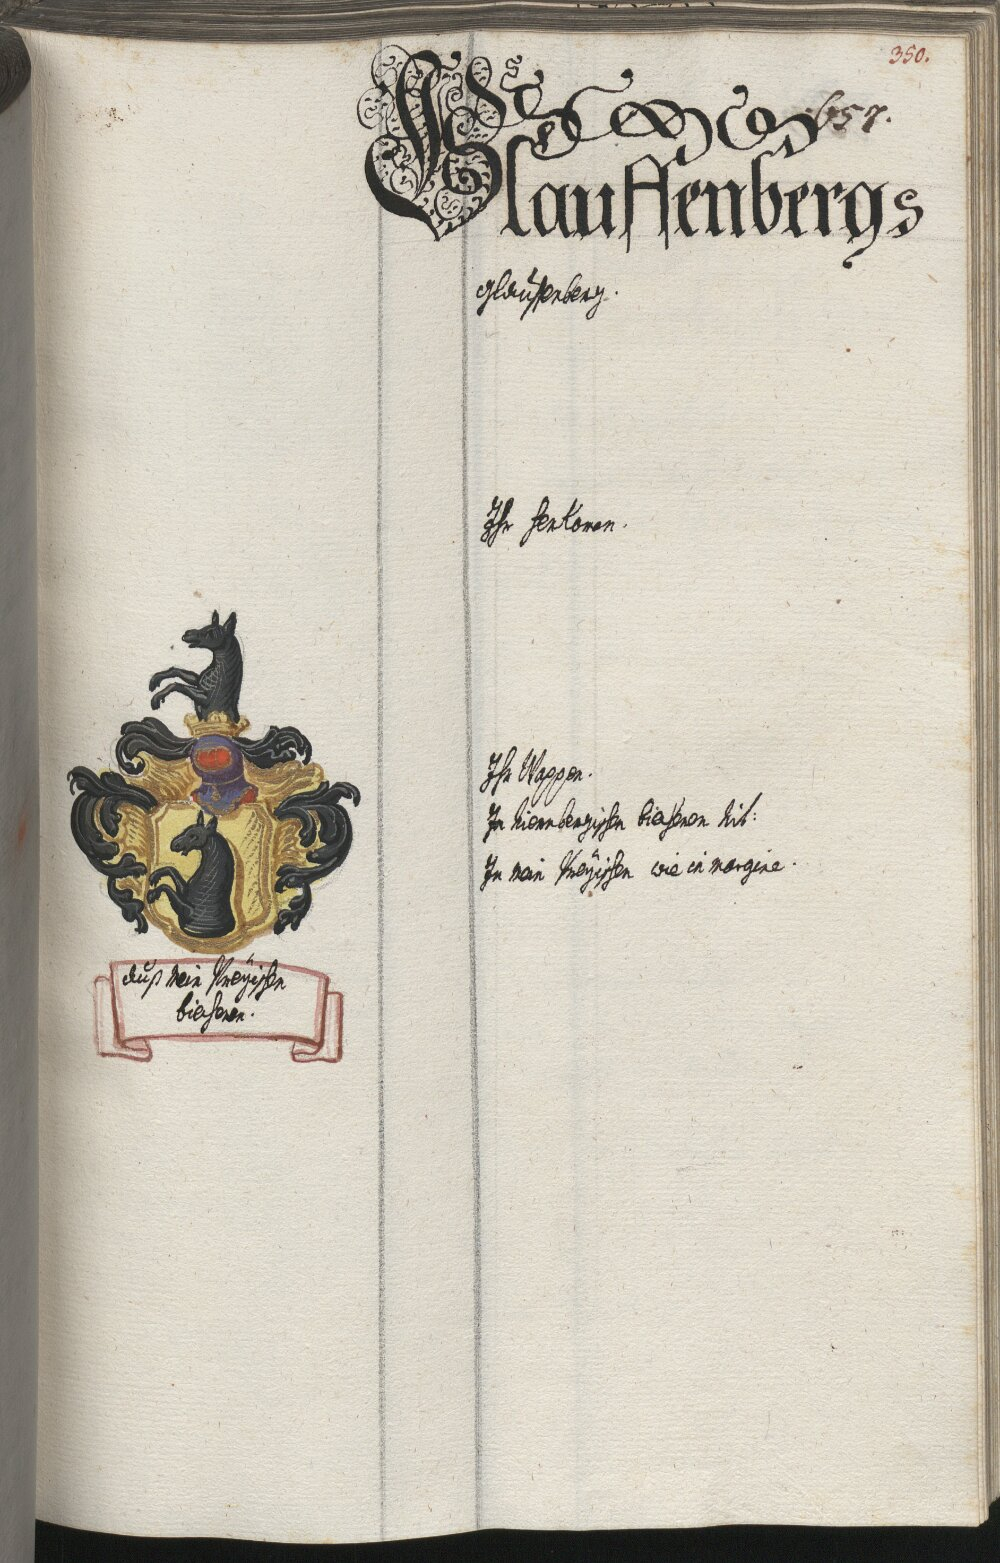 350.
657.
Glauffenbergs
Glauffenberg.
Ihr herkomen.
Ihr Wappen.
In Niernbergischen biechern nit:
In mein Kreyischen wie in margine.
Auß mein Kreyischen
biechern.